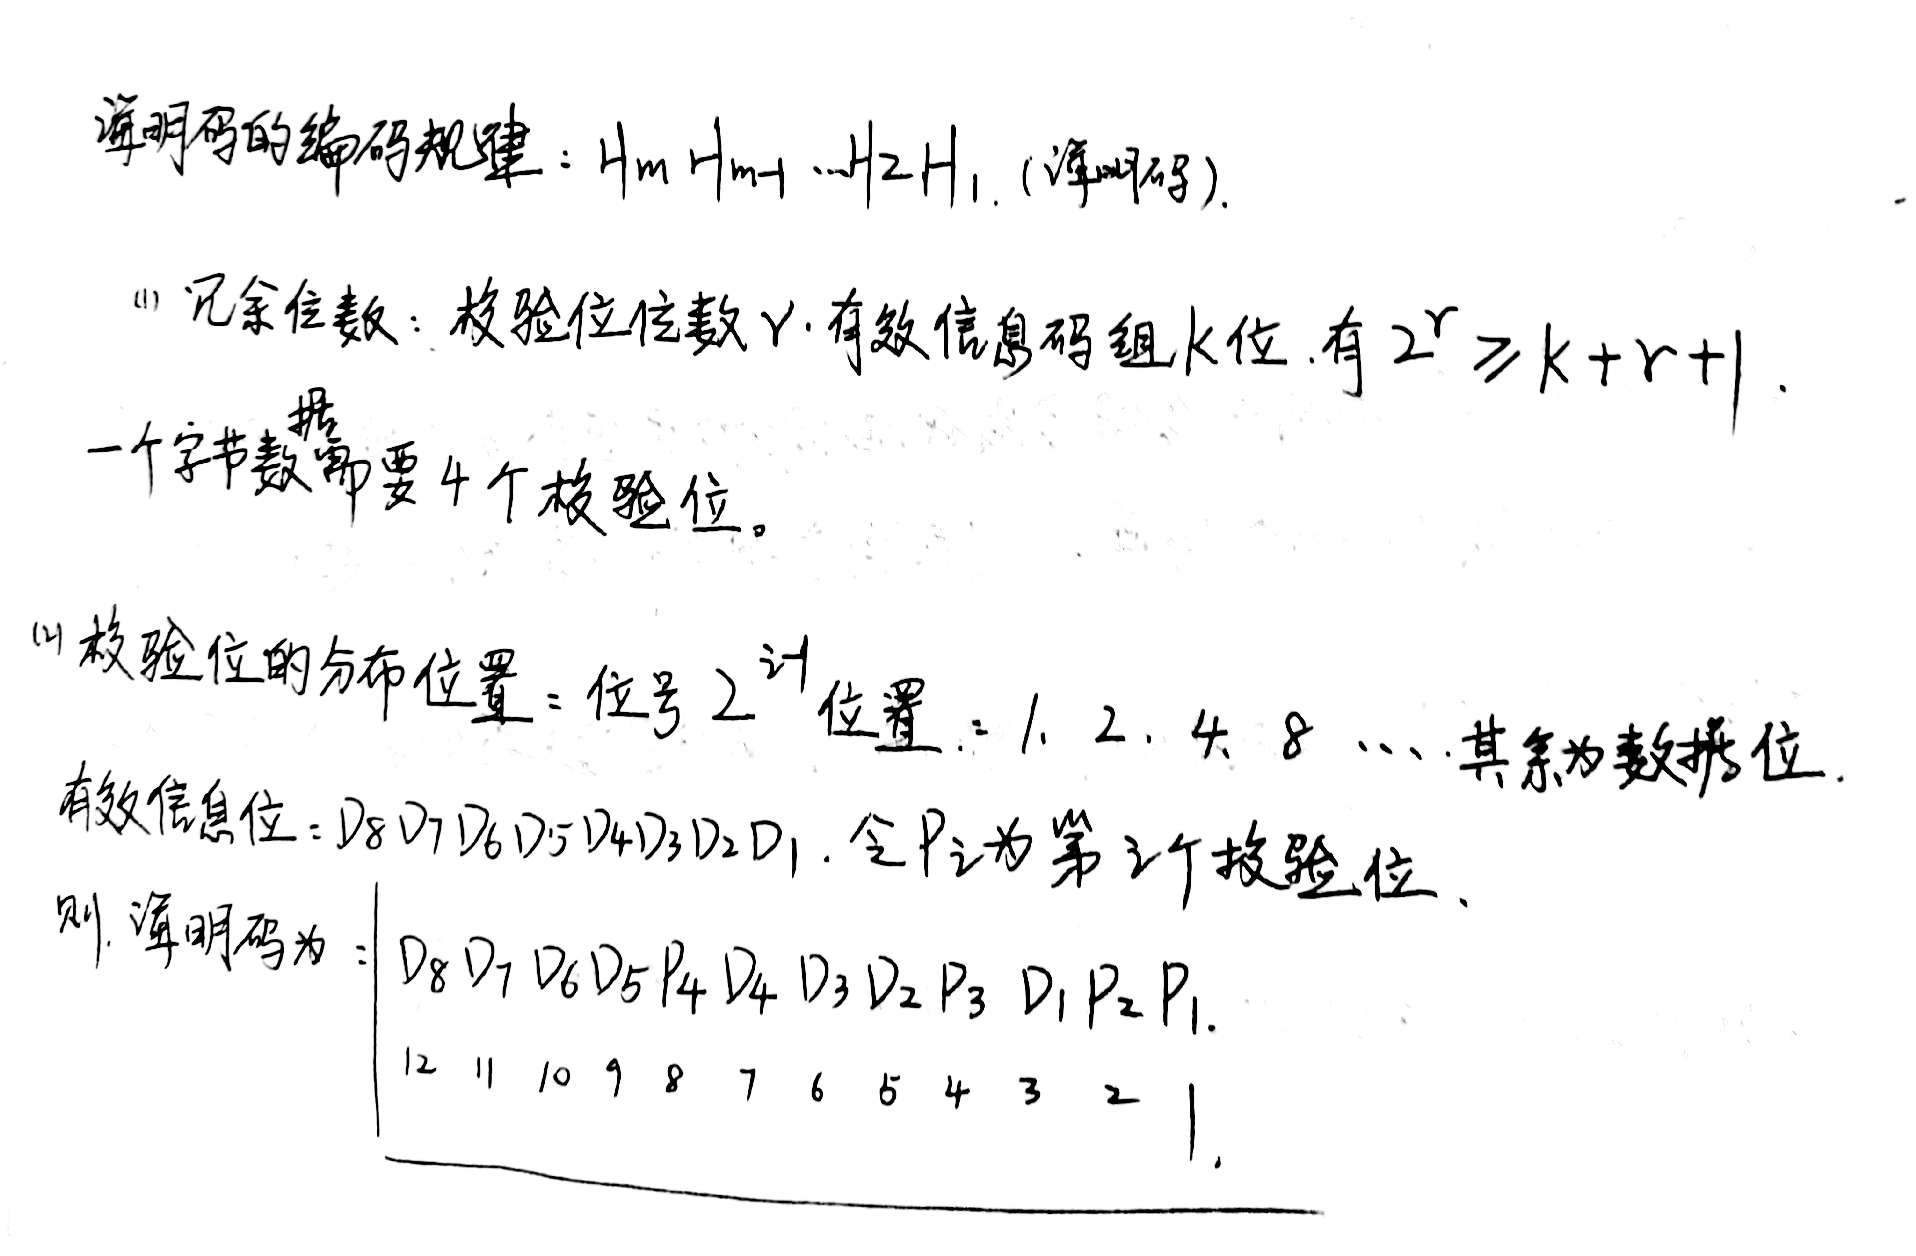 海明码的编码规律：Hm Hm-1 …H2H1.（海明码）.
(1) 冗余位数：校验位位数r.有效信息码组k位.有 2^r ≥ k+r+1.
一个字节数据需要4个校验位。
(2) 校验位的分布位置：位号2^i-1位置：1、2、4、8 …. 其余为数据位.
有效信息位：D8D7D6D5D4D3D2D1. 令Pi为第i个校验位、
则.海明码为： D8 D7 D6 D5 P4 D4 D3 D2 P3 D1 P2 P1.
12 11 10 9 8 7 6 5 4 3 2 1.